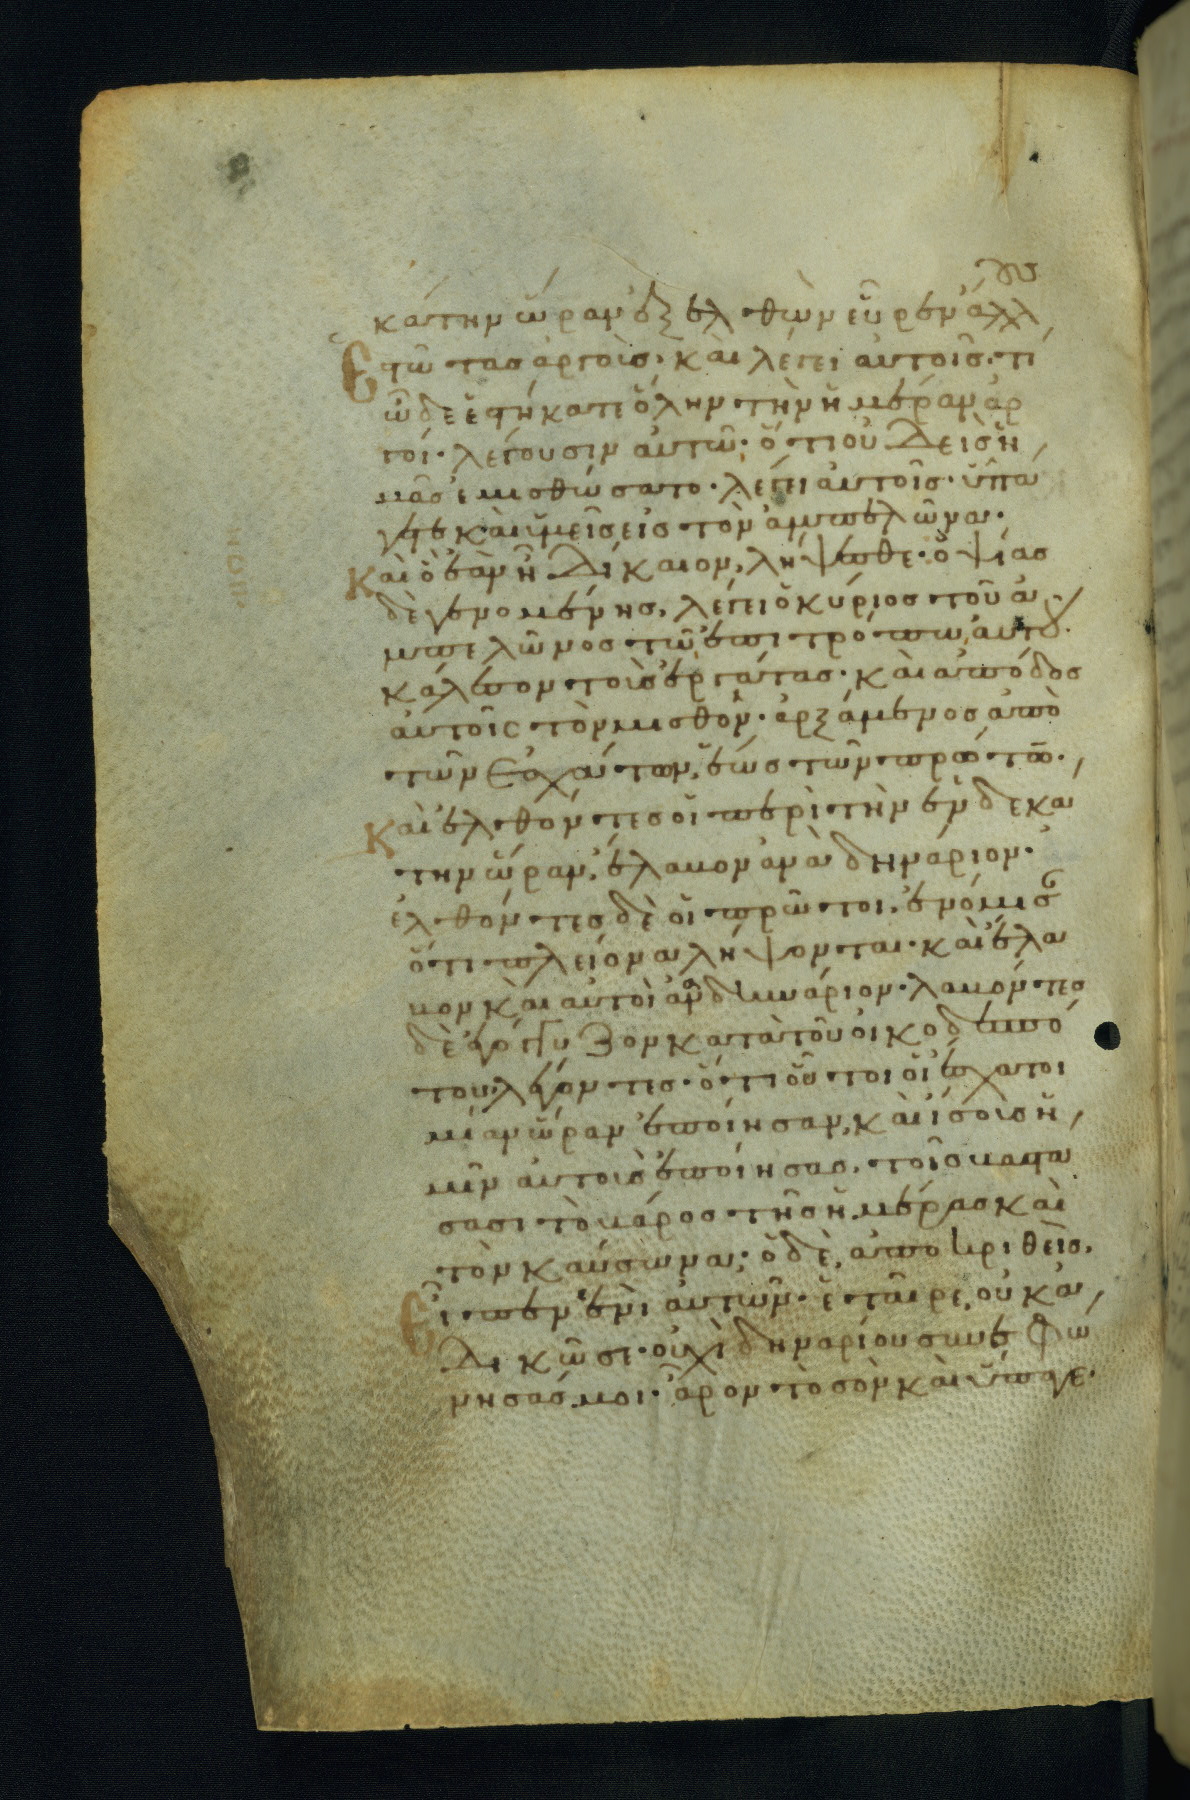 κάτην ὥραν ἐξελθὼν εὗρεν ἄλλους
ἑστῶτας ἀργοὺς· καὶ λέγει αὐτοῖς· τί
ὧδε ἑστήκατε ὅλην τὴν ἡμέραν ἀρ
γοί· λέγουσιν αὐτῶ· ὅτι οὐδεὶς ἡ
μᾶς ἐμισθώσατο· λέγει αὐτοῖς· ὑπά
γετε καὶ ὑμεῖς εἰς τὸν ἀμπελῶνα·
Καὶ ὃ ἐὰν ῆ δίκαιον, λήψεσθε· ὀψίας
δὲ γενομένης, λέγει ὁ κύριος τοῦ ἀ
μπελῶνος τῶ ἐπιτρόπω αὐτοῦ·
κάλεσον τοὺς ἐργάτας· καὶ ἀπόδος
αὐτοῖς τὸν μισθὸν· ἀρξάμενος ἀπὸ
τῶν ἐσχάτων, ἕως τῶν πρώτων·
Καὶ ἐλθόντες οἱ περὶ τὴν ἑνδεκά
την ὥραν, ἔλαβον ἀνὰ δηνάριον·
ἐλθόντες δὲ οἱ πρῶτοι, ἐνόμισαν
ὅτι πλείονα λήψονται· καὶ ἔλα
βον καὶ αὐτοὶ ἀνὰ δηνάριον· λαβόντες
δὲ ἐγόγγυζον κατὰ τοῦ οἰκοδεσπό
του λέγοντες· ὅτι οὗτοι οἱ ἔσχατοι
μίαν ὥραν ἐποίησαν, καὶ ἴσους ἡ
μῖν αὐτοὺς ἐποίησας, τοῖς βαστά
σασι τὸ βάρος τῆς ἡμέρας καὶ
τὸν καύσωνα· ὁ δὲ, ἀποκριθεὶς,
Εἶπεν ἑνὶ αὐτῶν· ἑταῖρε, οὐκ ἀ
δικῶ σε· οὐχὶ δηναρίου συνεφώ
νησάς μοι· ἆρον τὸ σὸν καὶ ὕπαγε·